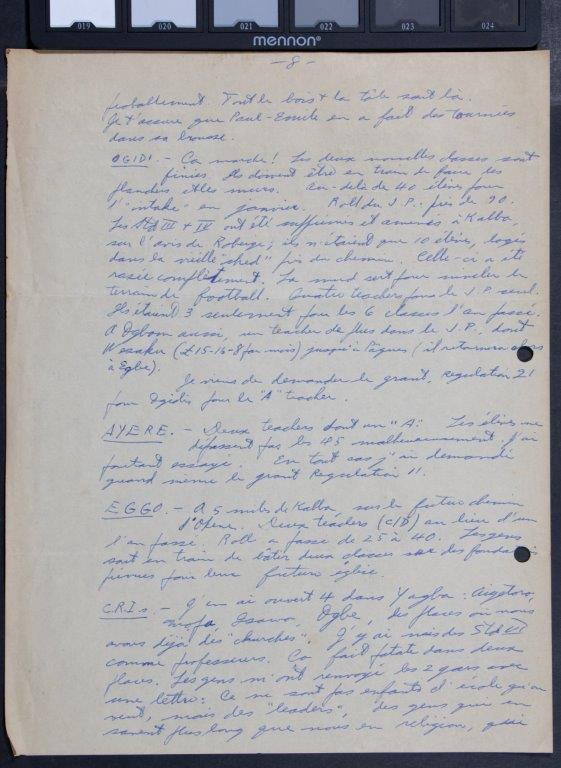 019 020 021 022 023 024
mennon®
- 8 -
probablement. Tout le bois & la tôle sont là.
Je t'assure que Paul-Emile en a fait des tournées
dans sa brousse.
OGIDI. - Ca marche! Les deux nouvelles classes sont
finies. Ils doivent être en train de faire les
planchers et les murs. Au-delà de 40 élèves pour
l'"intake" en janvier. Roll du J.P.: près de 90.
Les Std III & IV ont été et amenés à Kabba,
sur l'avis de Roberge; ils n'étaient que 10 élèves, logés
dans la vieille "shed" près du chemin. Celle-ci a été
rasée complètement. La sert pour niveler le
terrain de football. Quatre teachers pour le J.P. seul.
Ils étaient 3 seulement pour les 6 classes l'an passé.
A Ogbom aussi, un teacher de plus dans le J.P., dont
(£15-16-8 par mois) jusqu'à Pâques (il retournera alors
à Egbe).
Je viens de demander le grant, regulation 21
pour Ogidi, pour le "A" teacher.
AYERE. - Deux teachers dont un "A". Les élèves ne
dépassent pas les 45 malheureusement. J'ai
pourtant essayé. En tout cas j'ai demandé
quand même le grant Regulation 11.
EGGO. - A 5 miles de Kabba, sur le futur chemin
d'. Deux teachers (C/D) au lieu d'un
l'an passé. Roll a passé de 25 à 40. Les gens
sont en train de bâtir deux classes sur des fondations
pour leur future église.
C.R.I s. - J'en ai ouvert 4 dans Yagba: Aiyetoro,
Isawo, Ogbe, des places où nous
avons déjà des "churches". J'y ai mis des Std VI
comme professeurs. Ca fait patate dans deux
places. Les gens m'ont renvoyé les 2 gars avec
une lettre: Ce ne sont pas enfants d'école qu'on
veut, mais des "leaders", des gens qui en
savent plus long que nous en religion, qui